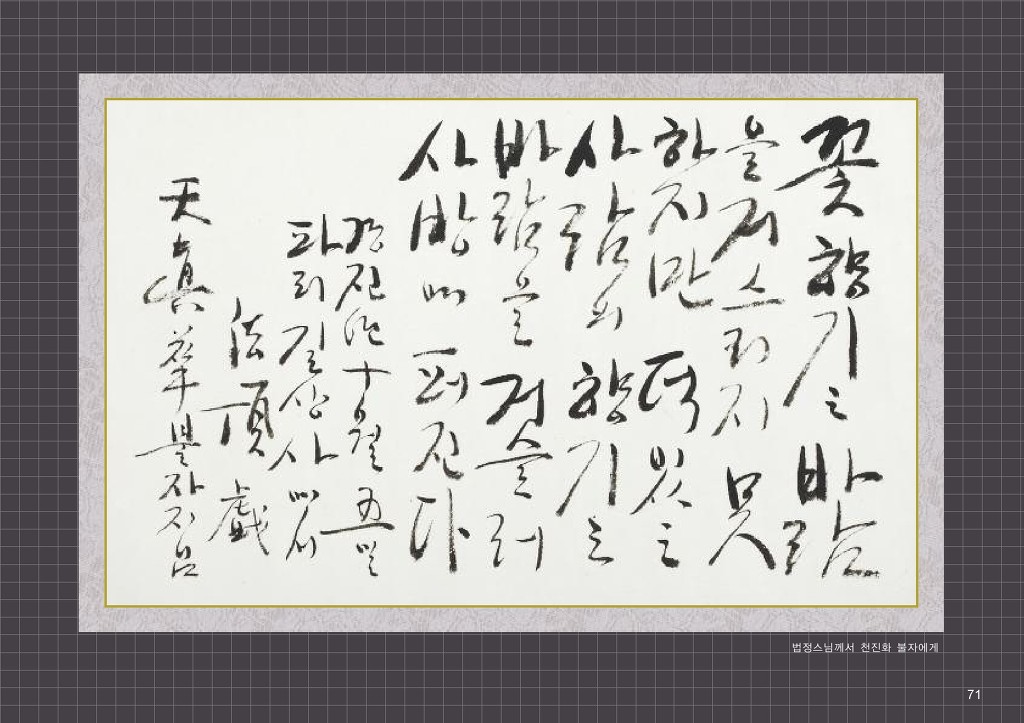 꽃 향기는 바람
을 거스리지 못
하지만 덕 있는
사람의 향기는
바람을 거슬레
사방에 퍼진다
경진年 十월 五일
파리 길상사에서
法頂 戱
天眞華 불자지님
법정스님께서 천진화 불자에게
71